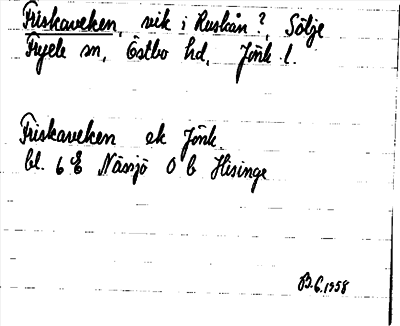 Friskaveken, vik i Ruskån?, Sölje
Fryele sn, Östbo hd, Jönk l.
Friskaveken ek Jönk.
bl. 6 E Nässjö O b Hisinge
B.G. 1958